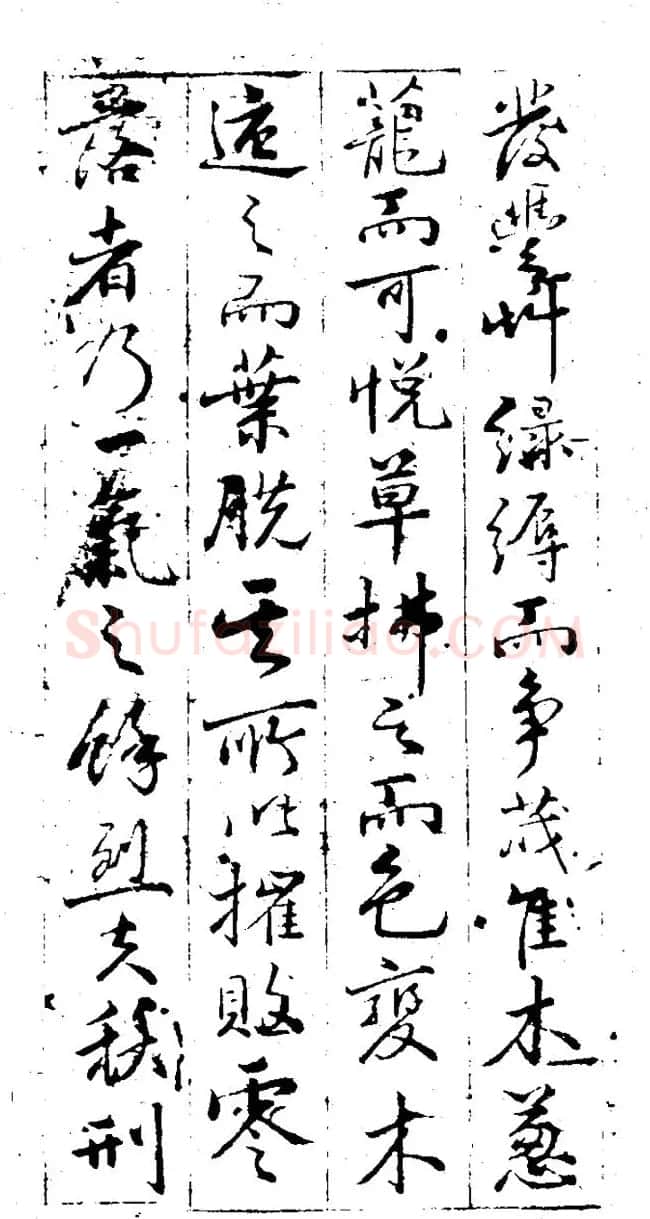 發豐艸綠縟而爭茂佳木蔥
蘢而可悅草拂之而色變木
遭之而葉脫其所以摧敗零
落者乃一氣之餘烈夫秋刑
Shufaziliao.COM